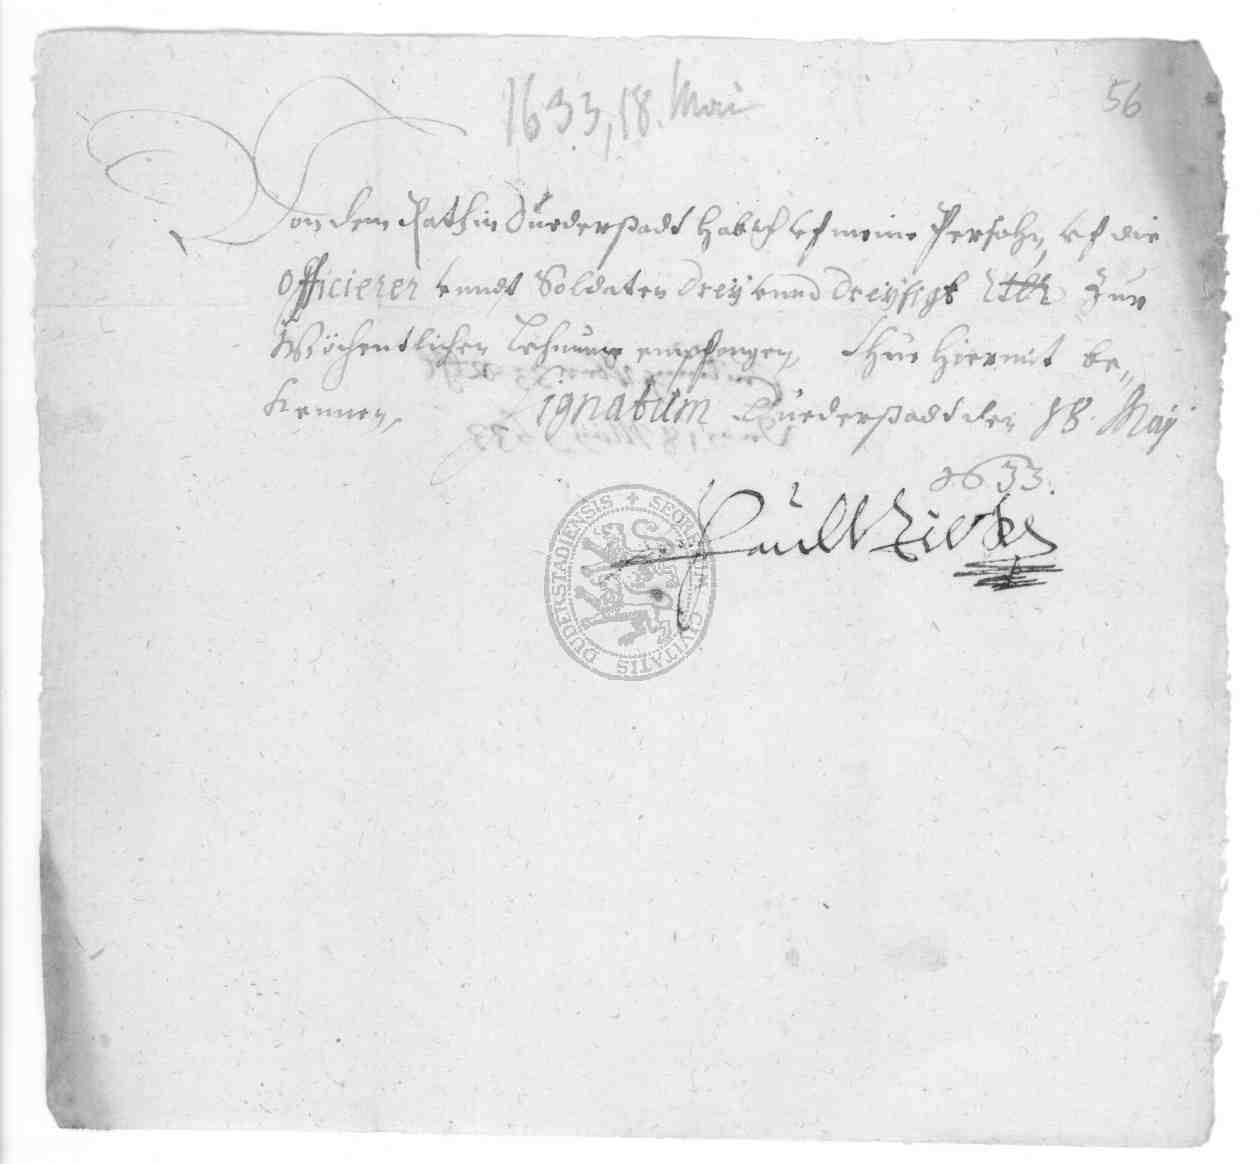 1633, 18. Mai
56
Von dem Rath in Duderstadt hab ich uf meine Persohn, uf die
Officierer unndt Soldaten dreÿ unnd dreÿsigk Rthlr Zur
Wöchentlichen Lehnung empfangen, Thue hiermit be„
Kennen, Signatum Duderstadt den 18. Maÿ
1633.
Paull
SIGILLUM CIVITATIS DUDERSTADIENSIS